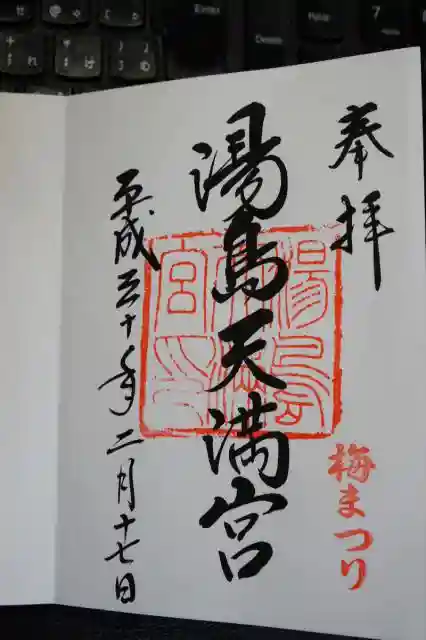 奉拝
湯島天満宮
梅まつり
平成三十年二月十七日
Enter
Delete
7